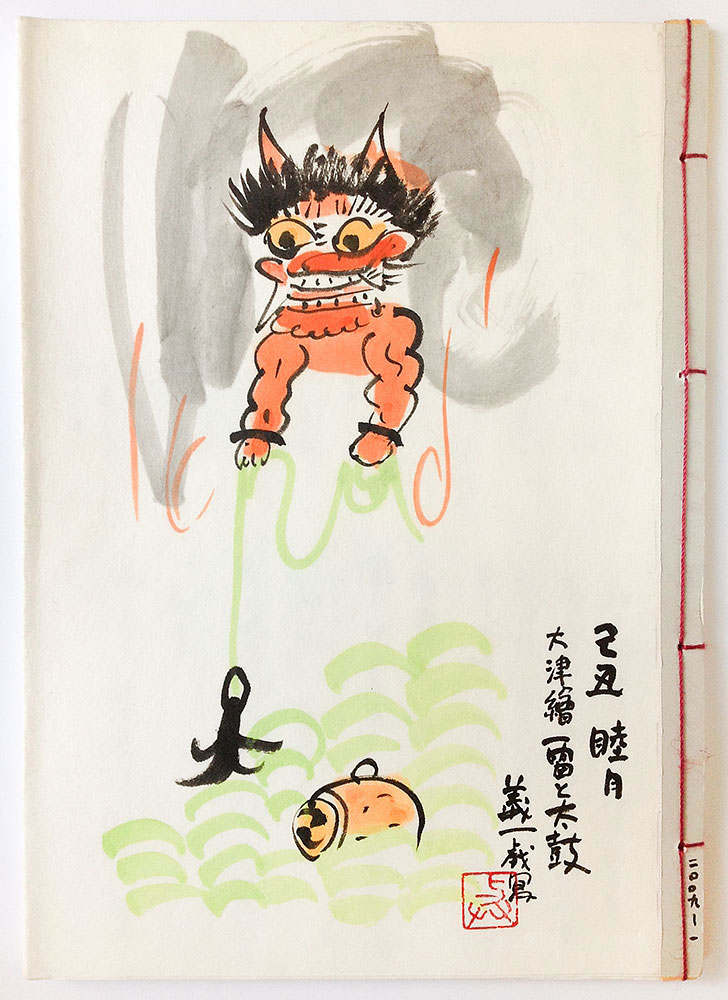 己丑 睦月
大津繪 雷と太鼓
義一戯写
二〇〇九-一